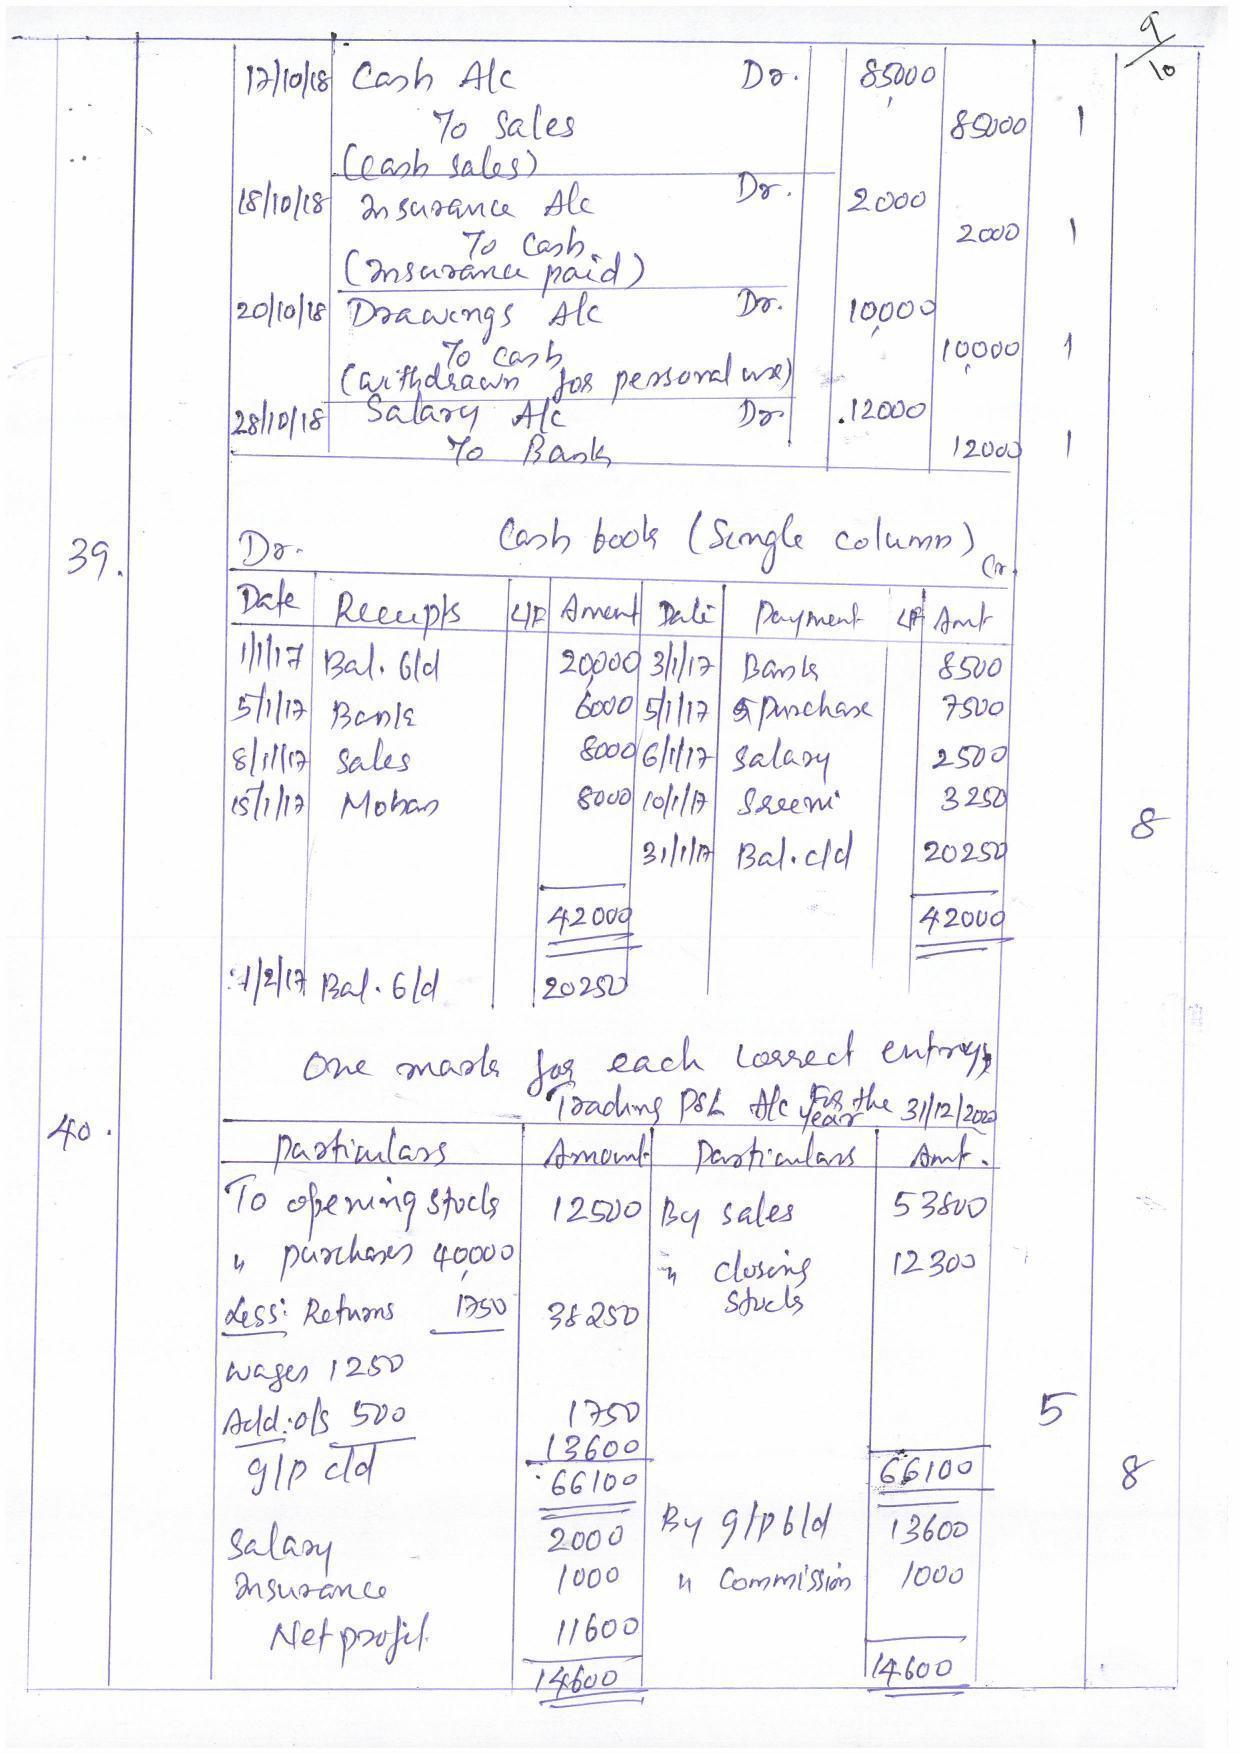 9/10
17/10/18 Cash A/c Dr. 85000
To Sales 85000 1
(cash sales)
18/10/18 Insurance A/c Dr. 2000
To Cash 2000 1
(Insurance paid)
20/10/18 Drawings A/c Dr. 10000
To cash 10000 1
(withdrawn for personal use)
28/10/18 Salary A/c Dr. 12000
To Bank 12000 1
39. Dr. Cash book (Single column) Cr.
Date Receipts L/F Amount Date Payment L/F Amt
1/1/17 Bal. b/d 20000 3/1/17 Bank 8500
5/1/17 Bank 6000 5/1/17 Purchase 7500
8/1/17 Sales 8000 6/1/17 Salary 2500
15/1/17 Mohan 8000 10/1/17 Sreeni 3250
31/1/17 Bal. c/d 20250
8
42000 42000
1/2/17 Bal. b/d 20250
One mark for each correct entry
40. Trading P&L A/c For the year 31/12/2000
Particulars Amount Particulars Amt.
To opening stock 12500 By sales 53800
" purchases 40000 " closing stock 12300
Less: Returns 1750 38250
wages 1250
Add: o/s 500 1750 5
g/p c/d 13600
66100 66100 8
Salary 2000 By g/p b/d 13600
Insurance 1000 " Commission 1000
Net profit 11600
14600 14600